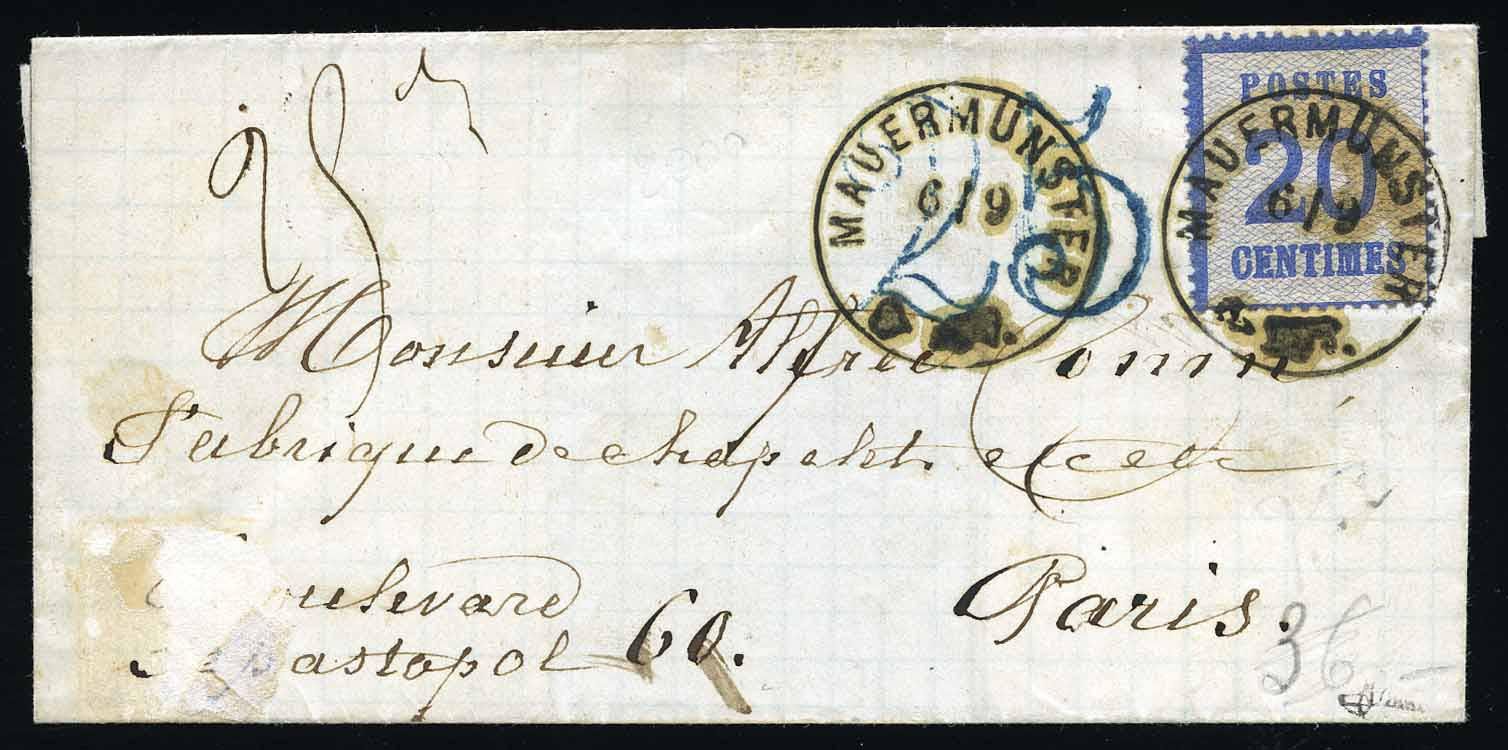 25
25
MAUERMÜNSTER
6/9
POSTES
20
CENTIMES
MAUERMÜNSTER
6/9
Monsieur Alfred
Fabrique de chapelets
Boulevard
Sebastopol 60.
Paris.
36